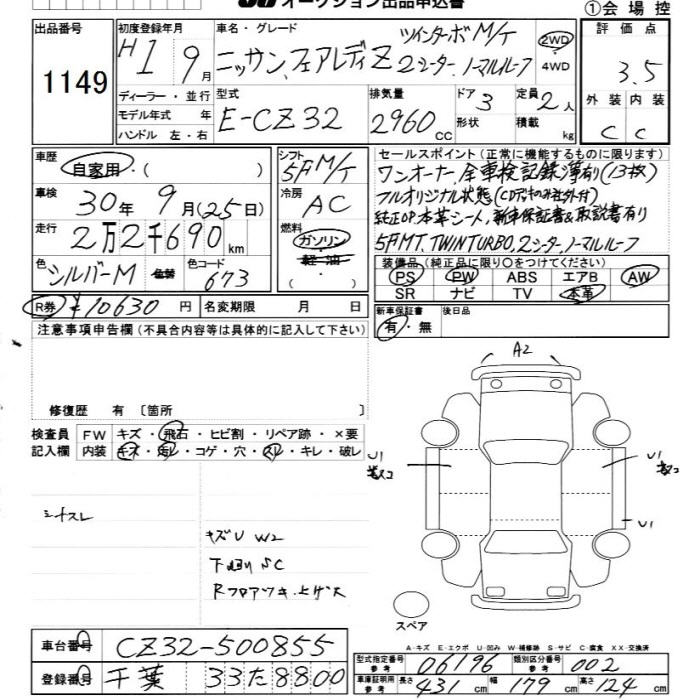 オークション出品申込書
①会場控
出品番号
1149
初度登録年月
H1 9月
車名・グレード
ツインターボ M/T
ニッサン フェアレディZ 2シーター ノーマルルーフ
2WD
4WD
評価点
3.5
外装 内装
C C
ディーラー・並行
モデル年式 年
ハンドル 左・右
型式
E-CZ32
排気量
2960cc
ドア 3
形状
定員 2人
積載 kg
車歴
自家用・( )
車検
30年 9月(25日)
走行
2万2千690km
色
シルバーM 色替
色コード
673
シフト
5F M/T
冷房
AC
燃料
ガソリン
・軽油・
( )
セールスポイント(正常に機能するものに限ります)
ワンオーナー、全車検記録簿有(13枚)
フルオリジナル状態
純正OP本革シート、新車保証書&取説書有り
5FMT、TWINTURBO、2シーター、ノーマルルーフ
装備品(純正品に限り○をつけてください)
PS PW ABS エアB AW
SR ナビ TV 本革
R券 ¥10630円
名変期限 月 日
新車保証書
有・無
後日品
注意事項申告欄(不具合内容等は具体的に記入して下さい)
修復歴 有 〔箇所 〕
検査員
記入欄
FW キズ・飛石・ヒビ割・リペア跡・×要
内装 キズ・汚レ・コゲ・穴・スレ・キレ・破レ
シートスレ
キズU W2
下廻りSC
A2
U1
U1
U1
スペア
車台番号
CZ32-500855
登録番号
千葉 33 た 8800
A・キズ E・エクボ U・凹み W・補修跡 S・サビ C・腐食 XX・交換済
型式指定番号 参考 06196
類別区分番号 参考 002
車庫証明用 参考 長さ 431cm 幅 179cm 高さ 124cm